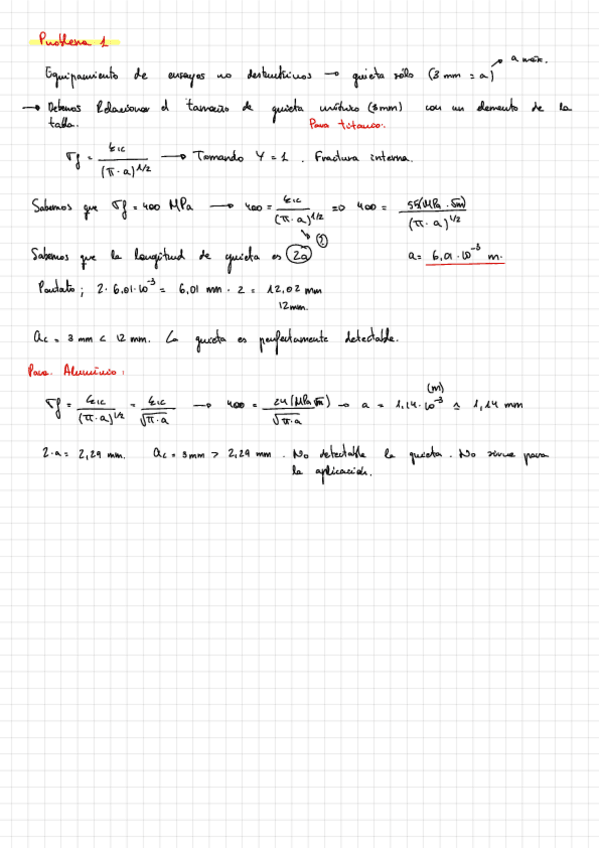 Problema 1
Equipamiento de ensayos no destructivos → grieta sólo (3 mm = a) → a máx.
→ Debemos Relacionar el tamaño de grieta mínimo (3mm) con un elemento de la
tabla.
Para titanio:
σf = KIC / (π·a)^1/2 → Tomando Y = 1. Fractura interna.
Sabemos que σf = 400 MPa → 400 = KIC / (π·a)^1/2 => 400 = 55(MPa·√m) / (π·a)^1/2
Sabemos que la longitud de grieta es 2a
a = 6,01·10^-3 m.
Por tanto; 2·6,01·10^-3 = 6,01 mm · 2 = 12,02 mm
12mm.
ac = 3 mm < 12 mm. La grieta es perfectamente detectable.
Para Aluminio:
σf = KIC / (π·a)^1/2 = KIC / √π·a → 400 = 24(MPa√m) / √π·a → a = 1,14·10^-3 (m) ≃ 1,14 mm
2·a = 2,29 mm. ac = 3mm > 2,29 mm. No detectable la grieta. No sirve para
la aplicación.